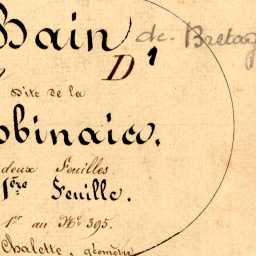 Bain de Bretag
D 1
dite de la
obinais.
deux Feuilles.
1ère Feuille.
1er au No 395.
Chalette, géomètre